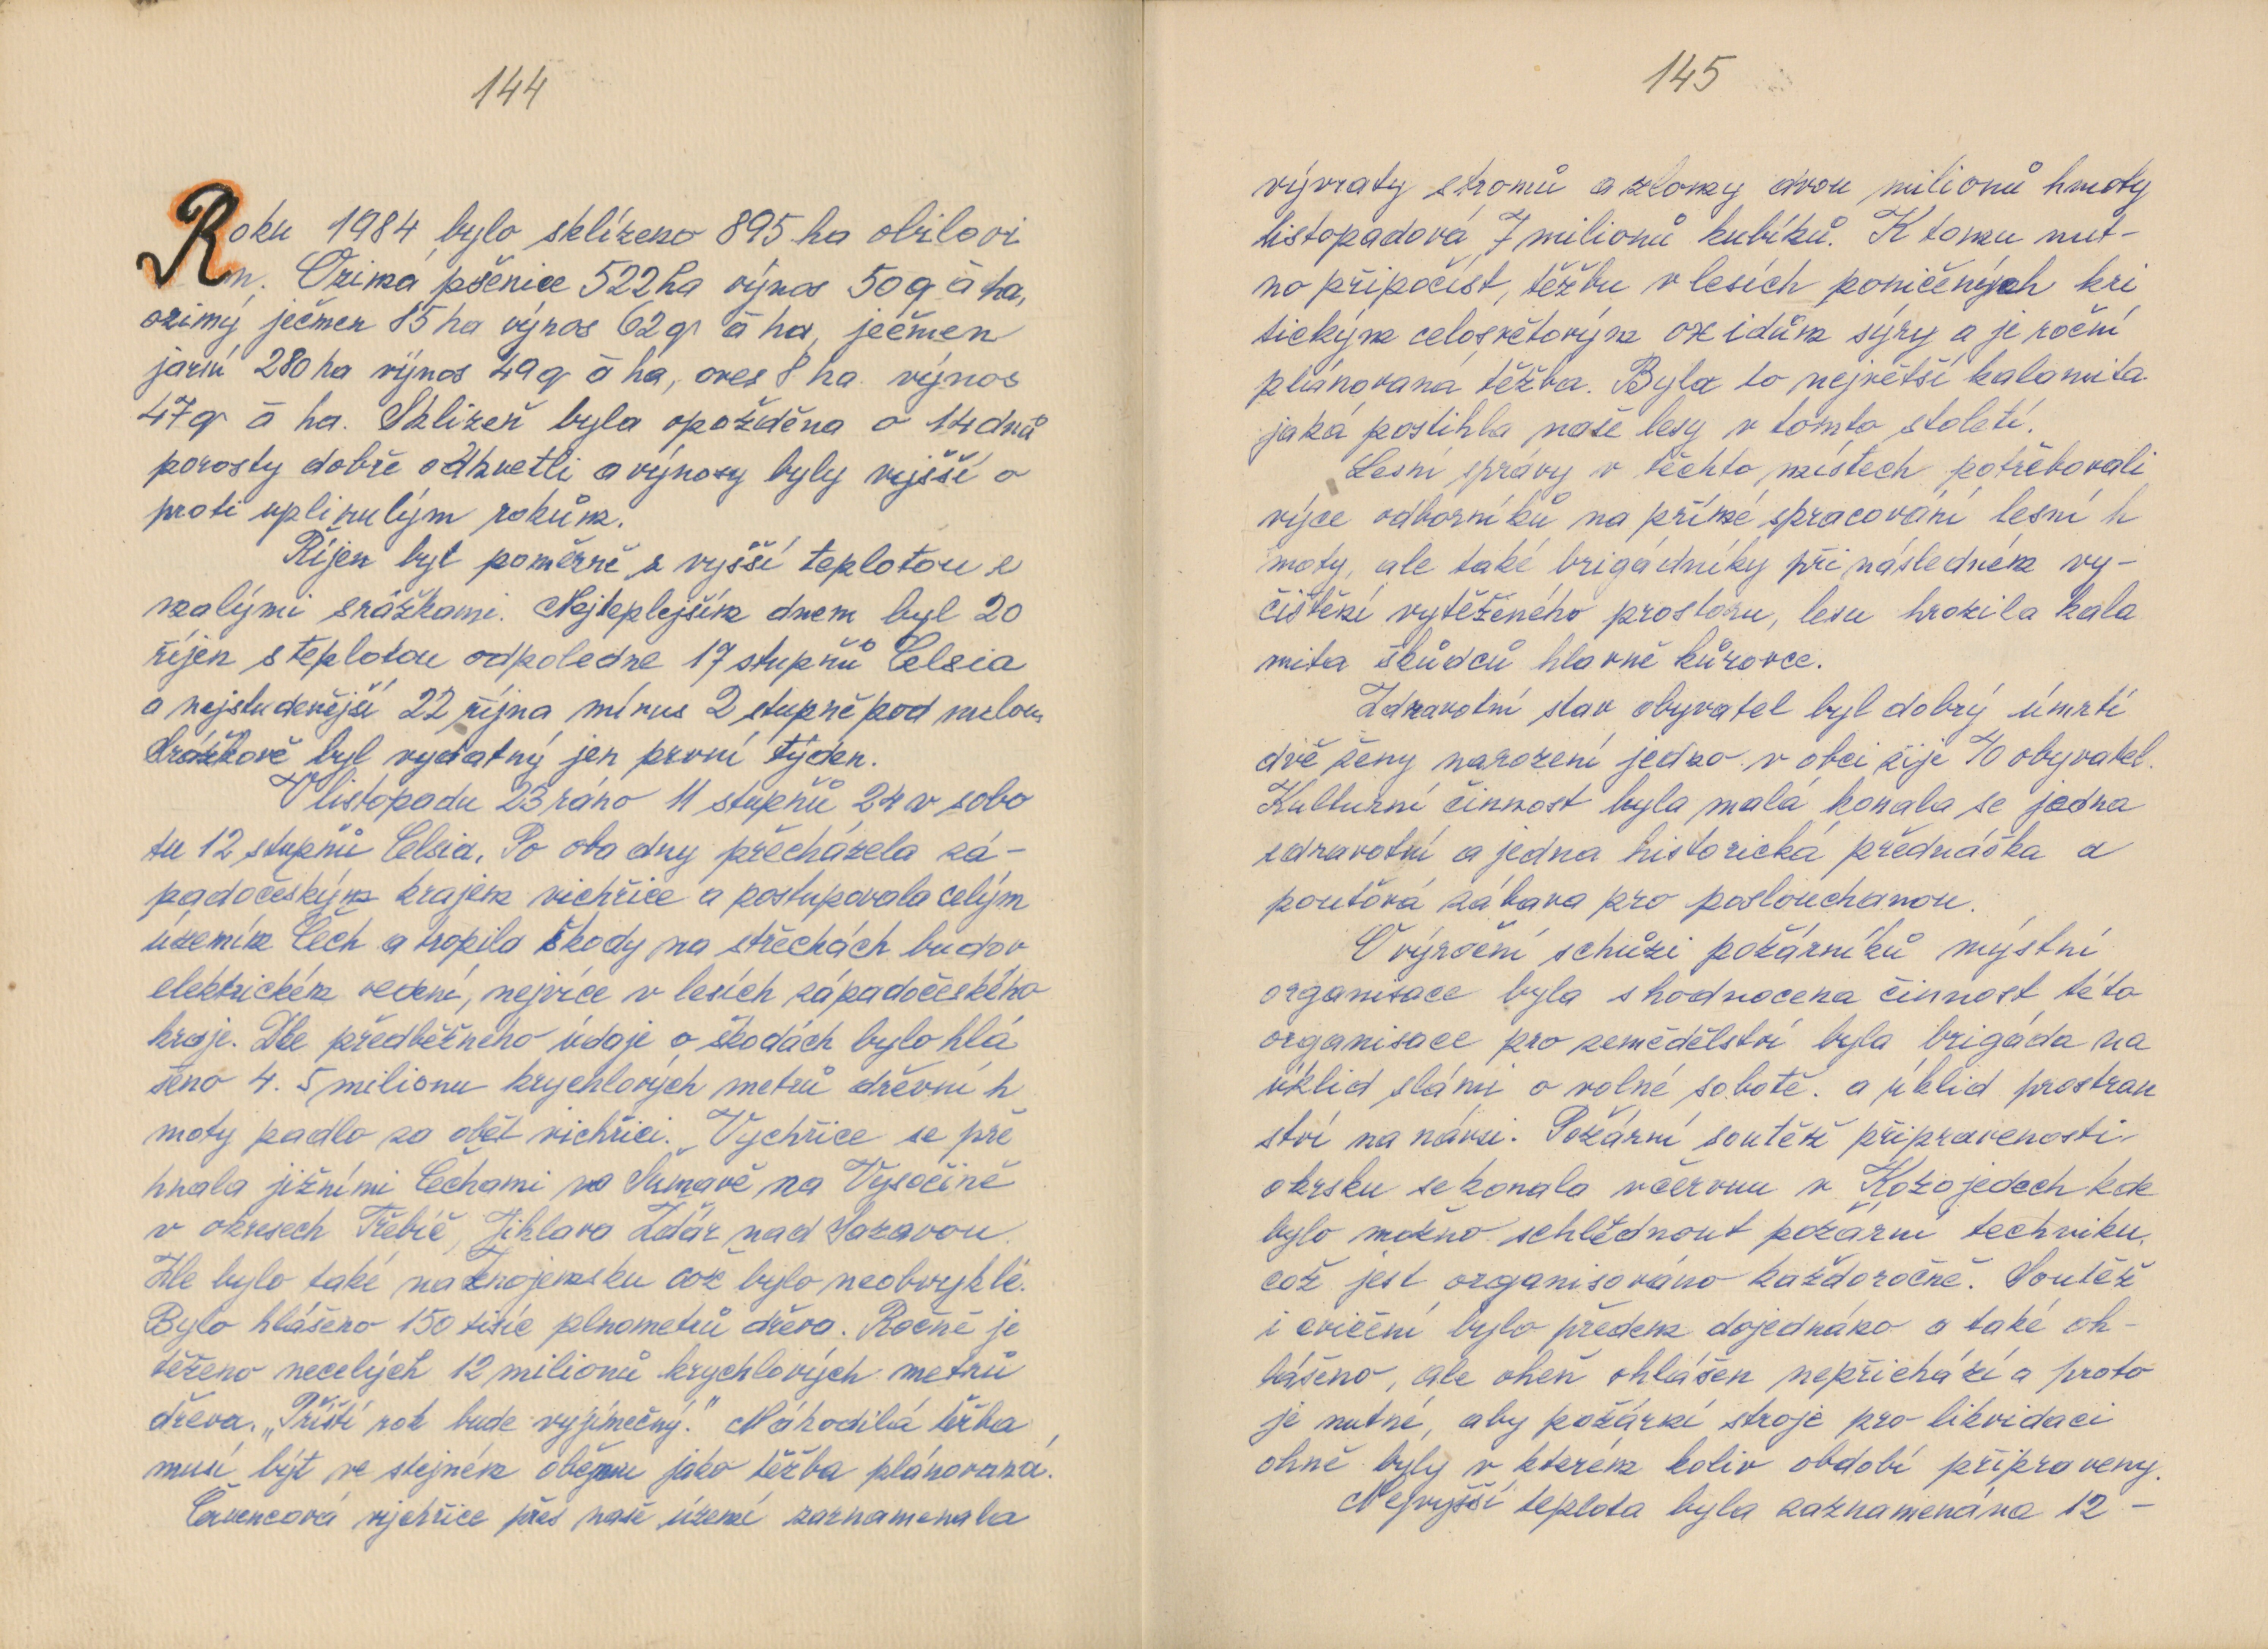 144
Roku 1984 bylo sklízeno 895 ha obilovi
n. Ozimá pšenice 522 ha výnos 50 q á ha,
ozimý ječmen 85 ha výnos 62 q á ha, ječmen
jarní 280 ha výnos 49 q á ha, oves 8 ha výnos
47 q á ha. Sklizeň byla opožděna o 14 dnů
porosty dobře odkvetli a výnosy byly vyjšší o
proti uplinulým rokům.
Říjen byl poměrně s vyšší teplotou s
malými srážkami. Nejteplejším dnem byl 20
říjen s teplotou odpoledne 17 stupňů Celsia
a nejstudenější 22 října mínus 2 stupně pod nulou
srážkově byl vydatný jen první týden.
V listopadu 23 ráno 11 stupňů 24 v sobo
tu 12 stupňů Celsia. Po oba dny přecházela zá-
padočeským krajem vichřice a postupovala celým
územím Čech a tropila škody na střechách budov
elektrickém vedení, nejvíce v lesích západočeského
kraje. Dle předběžného údaje o škodách bylo hlá
šeno 4. 5 milionu krychlových metrů dřevní h
moty padlo za obět vichřici. Vychřice se pře
hnala jižními Čechami na Šumavě na Vysočině
v okresech Třebíč, Jihlava Zdár nad Sazavou.
Zle bylo také na Znojemsku což bylo neobvyklé.
Bylo hlášeno 150 tisíc plnometrů dřeva. Ročně je
těženo necelých 12 milionů krychlových metrů
dřeva. „Příští rok bude vyjímečný." Náhodilá těžba
musí být ve stejném objemu jako těžba plánovaná.
Červencová vjchřice přes naše území zaznamenala
145
vývraty stromů a zlomy dvou milionů hmoty
listopadová 7 milionů kubíků. K tomu nut-
no připočíst, těžbu v lesích poničených kri
tickým celosvětovým oxidům sýry a je roční
plánovaná těžba. Byla to největší kalamita
jaká postihla naše lesy v tomto století.
Lesní správy v těchto místech potřebovali
výce odborníků na přímé spracování lesní h
moty, ale také brigádníky při následném vy-
čištění vytěženého prostoru, lesu hrozila kala
mita škůdců hlavně kůrovce.
Zdravotní stav obyvatel byl dobrý úmrtí
dvě ženy narození jedno v obci žije 70 obyvatel.
Kulturní činnost byla malá konala se jedna
zdravotní a jedna historická přednáška a
pouťová zábava pro poslouchanou.
O výroční schůzi požárníků mýstní
organisace byla shodnocena činnost této
organisace pro zemědělství byla brigáda na
úklid slámi o volné sobotě. a úklid prostran
ství na návsi. Požární soutěž připravenosti
okrsku se konala v červnu v Kožojedech kde
bylo možno schlédnout požární techniku,
což jest organisováno každoročně. Soutěž
i cvičení bylo předem dojednáno a také oh-
lášeno, ale oheň ohlášen nepřichází a proto
je nutné, aby požární stroje pro likvidaci
ohně byly v kterém koliv období připraveny.
Nejvyšší teplota byla zaznamenána 12 -